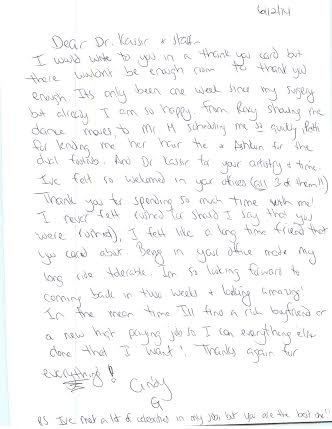 6/12/14
Dear Dr. Kassir + staff~
I would write to you in a thank you card but
there wouldn't be enough room to thank you
enough. Its only been one week since my surgery
but already I am so happy. From Roxy showing me
dance moves, to Mr. M scheduling me so quickly, Beth
for lending me her hair tie + Ashlyn for the
. And Dr Kassir for your artistry + time.
Ive felt so welcomed in your offices (all 3 of them!!)
Thank you for spending so much time with me!
I never felt rushed (or should I say that you
were rushed), I felt like a long time friend that
you cared about. Being in your office made my
long ride tolerable. Im so looking forward to
coming back in two weeks + looking amazing!
In the mean time I'll find a rich boyfriend or
a new high paying job so I can everything else
done that I want! Thanks again for
everything!
Cindy
G
PS Ive met a lot of celebrities in my job but you are the best one!!